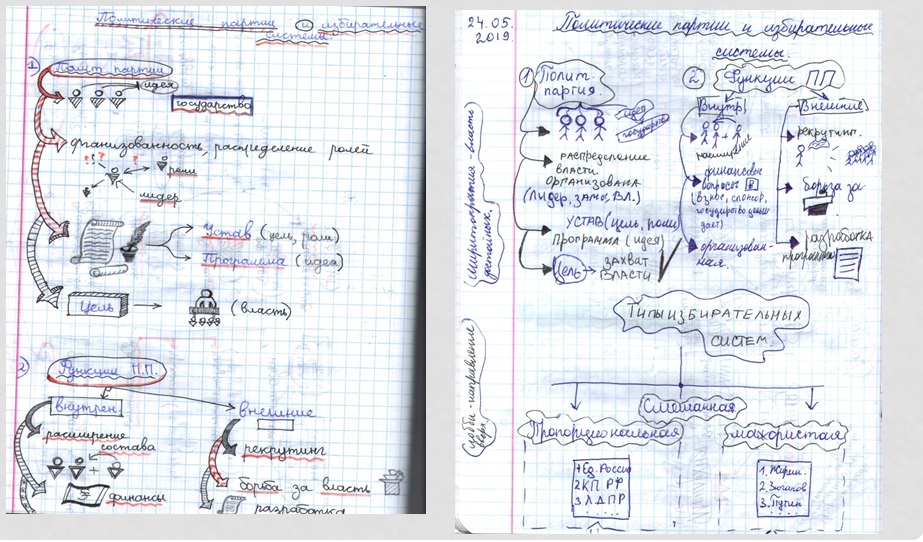 Политические партии и избирательные
системы.
1) Полит партии
идея
государство
организованность, распределение ролей
роли
лидер
Устав (цель, роли)
Программа (идея)
Цель
(власть)
2) Функции П.П.
внутрен.
внешние
расширение
состава
рекрутинг
финансы
борьба за власть
разработка
24.05.
2019
Политические партии и избирательные
системы.
1) Полит
партия.
идея
распределение
власти
организована
(Лидер, замы, Вл.)
УСТАВ (цель, роли)
Программа (идея)
Цель → захват
власти
2) Функции ПП
Внутр
Внешние
рекрутинг.
финансовые
вопросы
(взнос, спонсор,
государство деньги
дает)
борьба за
организован-
ная.
разработка
программы
(меритократия - власть
достойных)
Типы избирательных
систем.
Смешанная
Пропорциональная
мажористая
1 Ед. Россия
2 КП РФ
3 ЛДПР
1. Жирин.
2. Зюганов
3. Путин